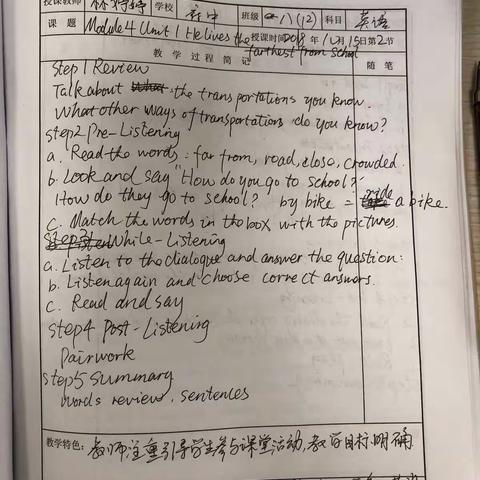 授课教师 林 学校 中 班级 八(12) 科目 英语
课题 Module 4 Unit 1 He lives the farthest from school 授课时间 2018年10月15日第2节
教学过程简记 随笔
Step 1 Review
Talk about the transportations you know.
What other ways of transportations do you know?
Step2 Pre-Listening
a. Read the words: far from, road, close, crowded.
b. Look and say "How do you go to school?"
How do they go to school? by bike = ride a bike.
c. Match the words in the box with the pictures.
Step3 While-Listening
a. Listen to the dialogue and answer the question:
b. Listen again and choose correct answers.
c. Read and say
Step4 Post-Listening
Pairwork
Step5 Summary
Words review, sentences
教学特色: 教师注重引导学生参与课堂活动,教学目标明确